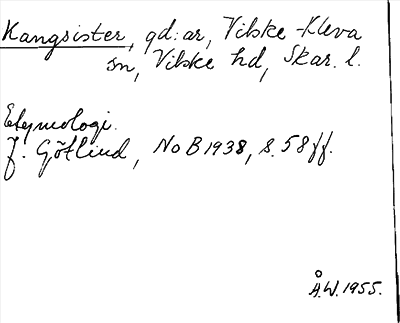 Kangsister, gd:ar, Vilske-Kleva
sn, Vilske hd, Skar. l.
Etymologi.
J. Götlind, NoB 1938, s. 58 ff.
Å.W. 1955.